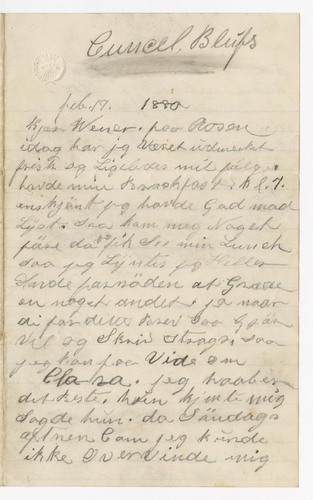 Cuncel Blufs
feb. 17. 1880
kjær Wener. paa Rosen
idag har jeg Veret udmerket
frisk og Ligeledes mit følge
havde min Breckfast. k l. 7.
enskjønt jeg havde Gad mad
Lyst. Saa kam mag Noget
fik See min Lunch
Saa jeg Lyntes jeg Heller
Havde at Græde
en noget andet. ja naar
di faar dette Brev Saa Gjør
Vel og Skriv Strags. Saa
jeg kan faa Vide om
Clara. jeg haaber
det beste. hun kjente mig
Sagde hun. da Söndags
aftnen Cam jeg kunde
ikke Overvinde mig